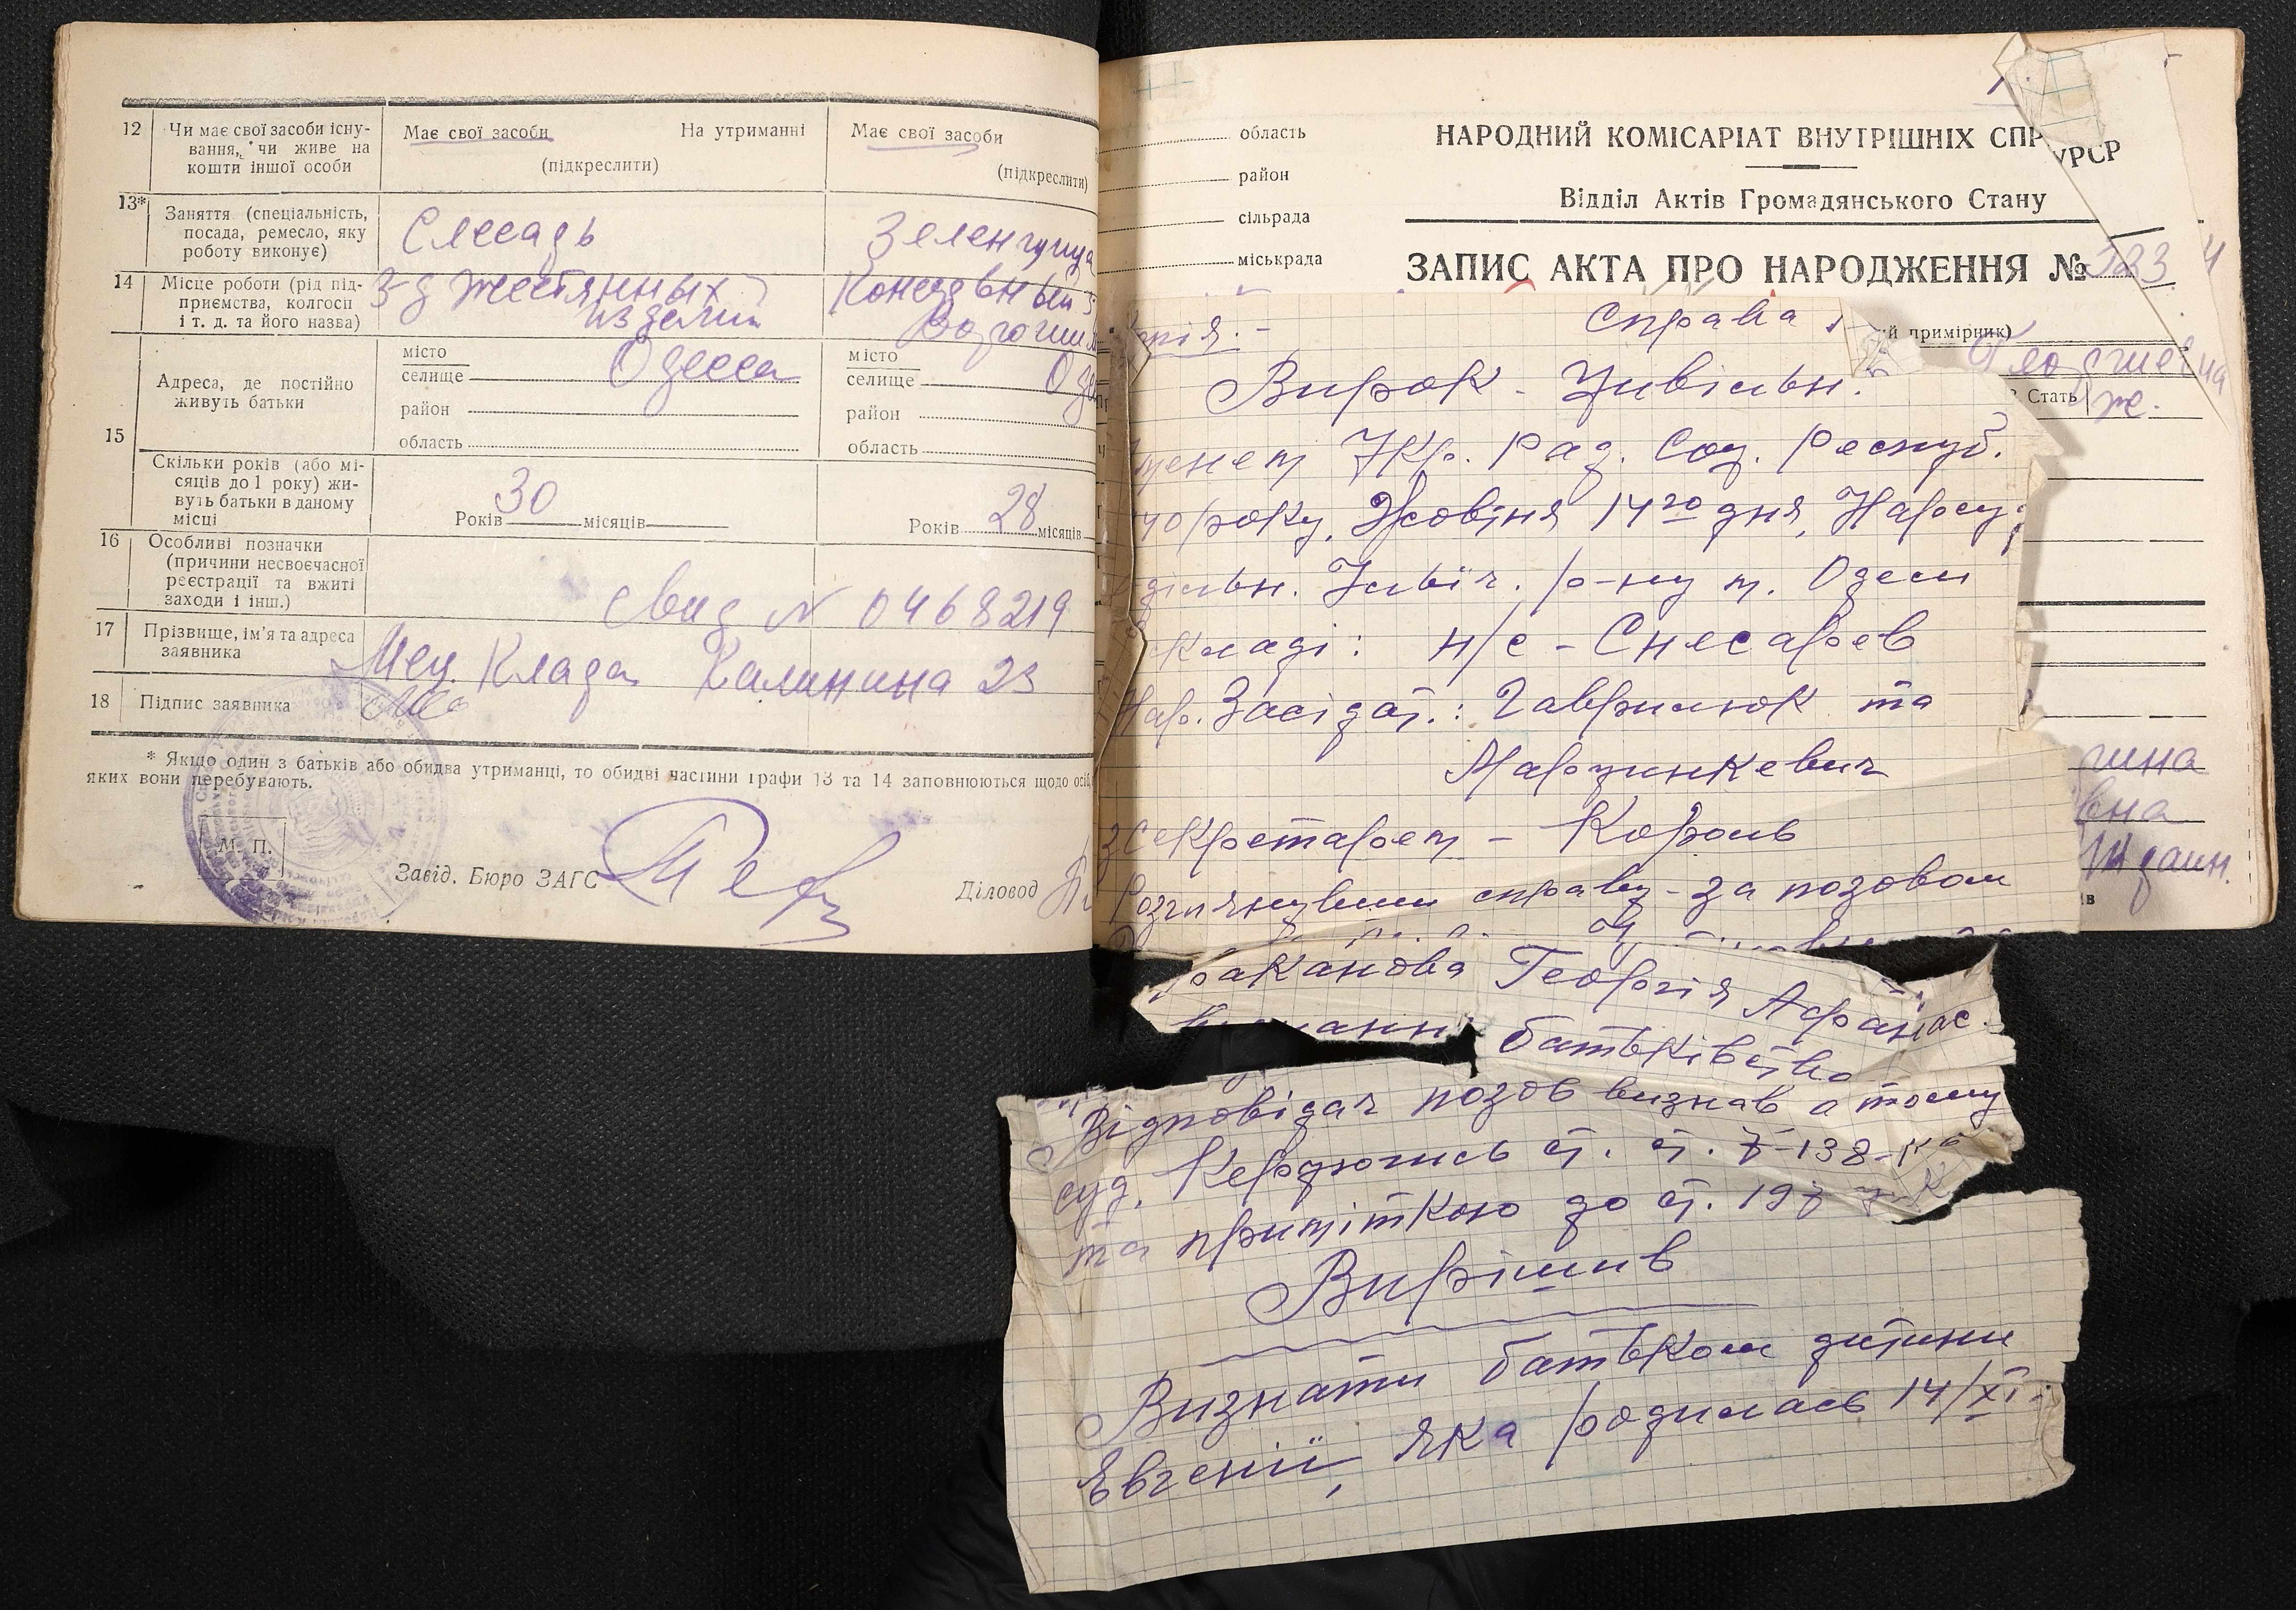 12 Чи має свої засоби існу-
вання, чи живе на
кошти іншої особи
Має свої засоби На утриманні
(підкреслити)
Має свої засоби
(підкреслити)
13* Заняття (спеціальність,
посада, ремесло, яку
роботу виконує)
Слесарь
14 Місце роботи (рід під-
приємства, колгосп
і т. д. та його назва)
З-д жестянных
изделий
Консервный з-
Ворошил
15 Адреса, де постійно
живуть батьки
місто
селище Одесса
район
область
місто
селище Оде
район
область
Скільки років (або мі-
сяців до 1 року) жи-
вуть батьки в даному
місці
Років 30 місяців
Років 28 місяців
16 Особливі позначки
(причини несвоєчасної
реєстрації та вжиті
заходи і інш.)
Свид N 0468219
17 Прізвище, ім'я та адреса
заявника
Клара Калинина 23
18 Підпис заявника
* Якщо один з батьків або обидва утриманці, то обидві частини графи 13 та 14 заповнюються щодо осіб,
яких вони перебувають.
М. П.
Завід. Бюро ЗАГС
Діловод
область
район
сільрада
міськрада
НАРОДНИЙ КОМІСАРІАТ ВНУТРІШНІХ СПР
УРСР
Відділ Актів Громадянського Стану
ЗАПИС АКТА ПРО НАРОДЖЕННЯ №
ий примірник)
2. Стать ж.
Справа
Вирок - Цивільн.
Іменем Укр. Рад. Соц. Респуб.
року, Жовтня 14го дня, Нарсуд
Ілліч. р-ну м. Одеси
складі: н/с - Снесарев
Нар. Засідат.: Гаврилюк та
Марцинкевич
з секретарем - Король
Розглянувши справу - за позовом
раканова Георгія Афанас.
батьківства
Відповідач позов визнав а тому
суд, Керуючись ст. ст. 7-138-
та приміткою до ст. 197
Вирішив
Визнати батьком дитини
Євгенії, яка родилась 14/XI-
гина
вна
ждан.
ів